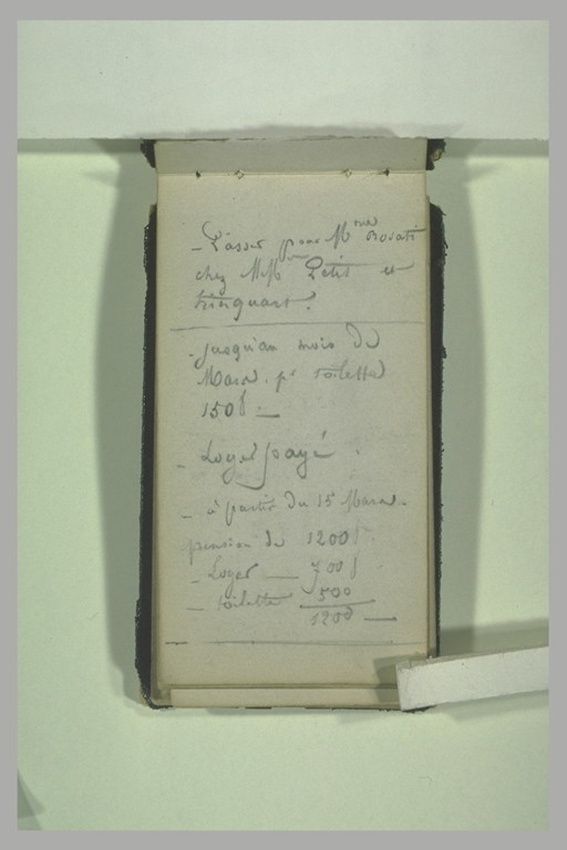 - Passer pour Mme Rosati
chez MM Petit et
trinquart.
- jusqu'au mois de
Mars. pr toilette
150f. —
- Loyer payé
- à partir du 15 Mars -
pension de 1200f.
- Loyer — 700f
- toilette 500
1200 —